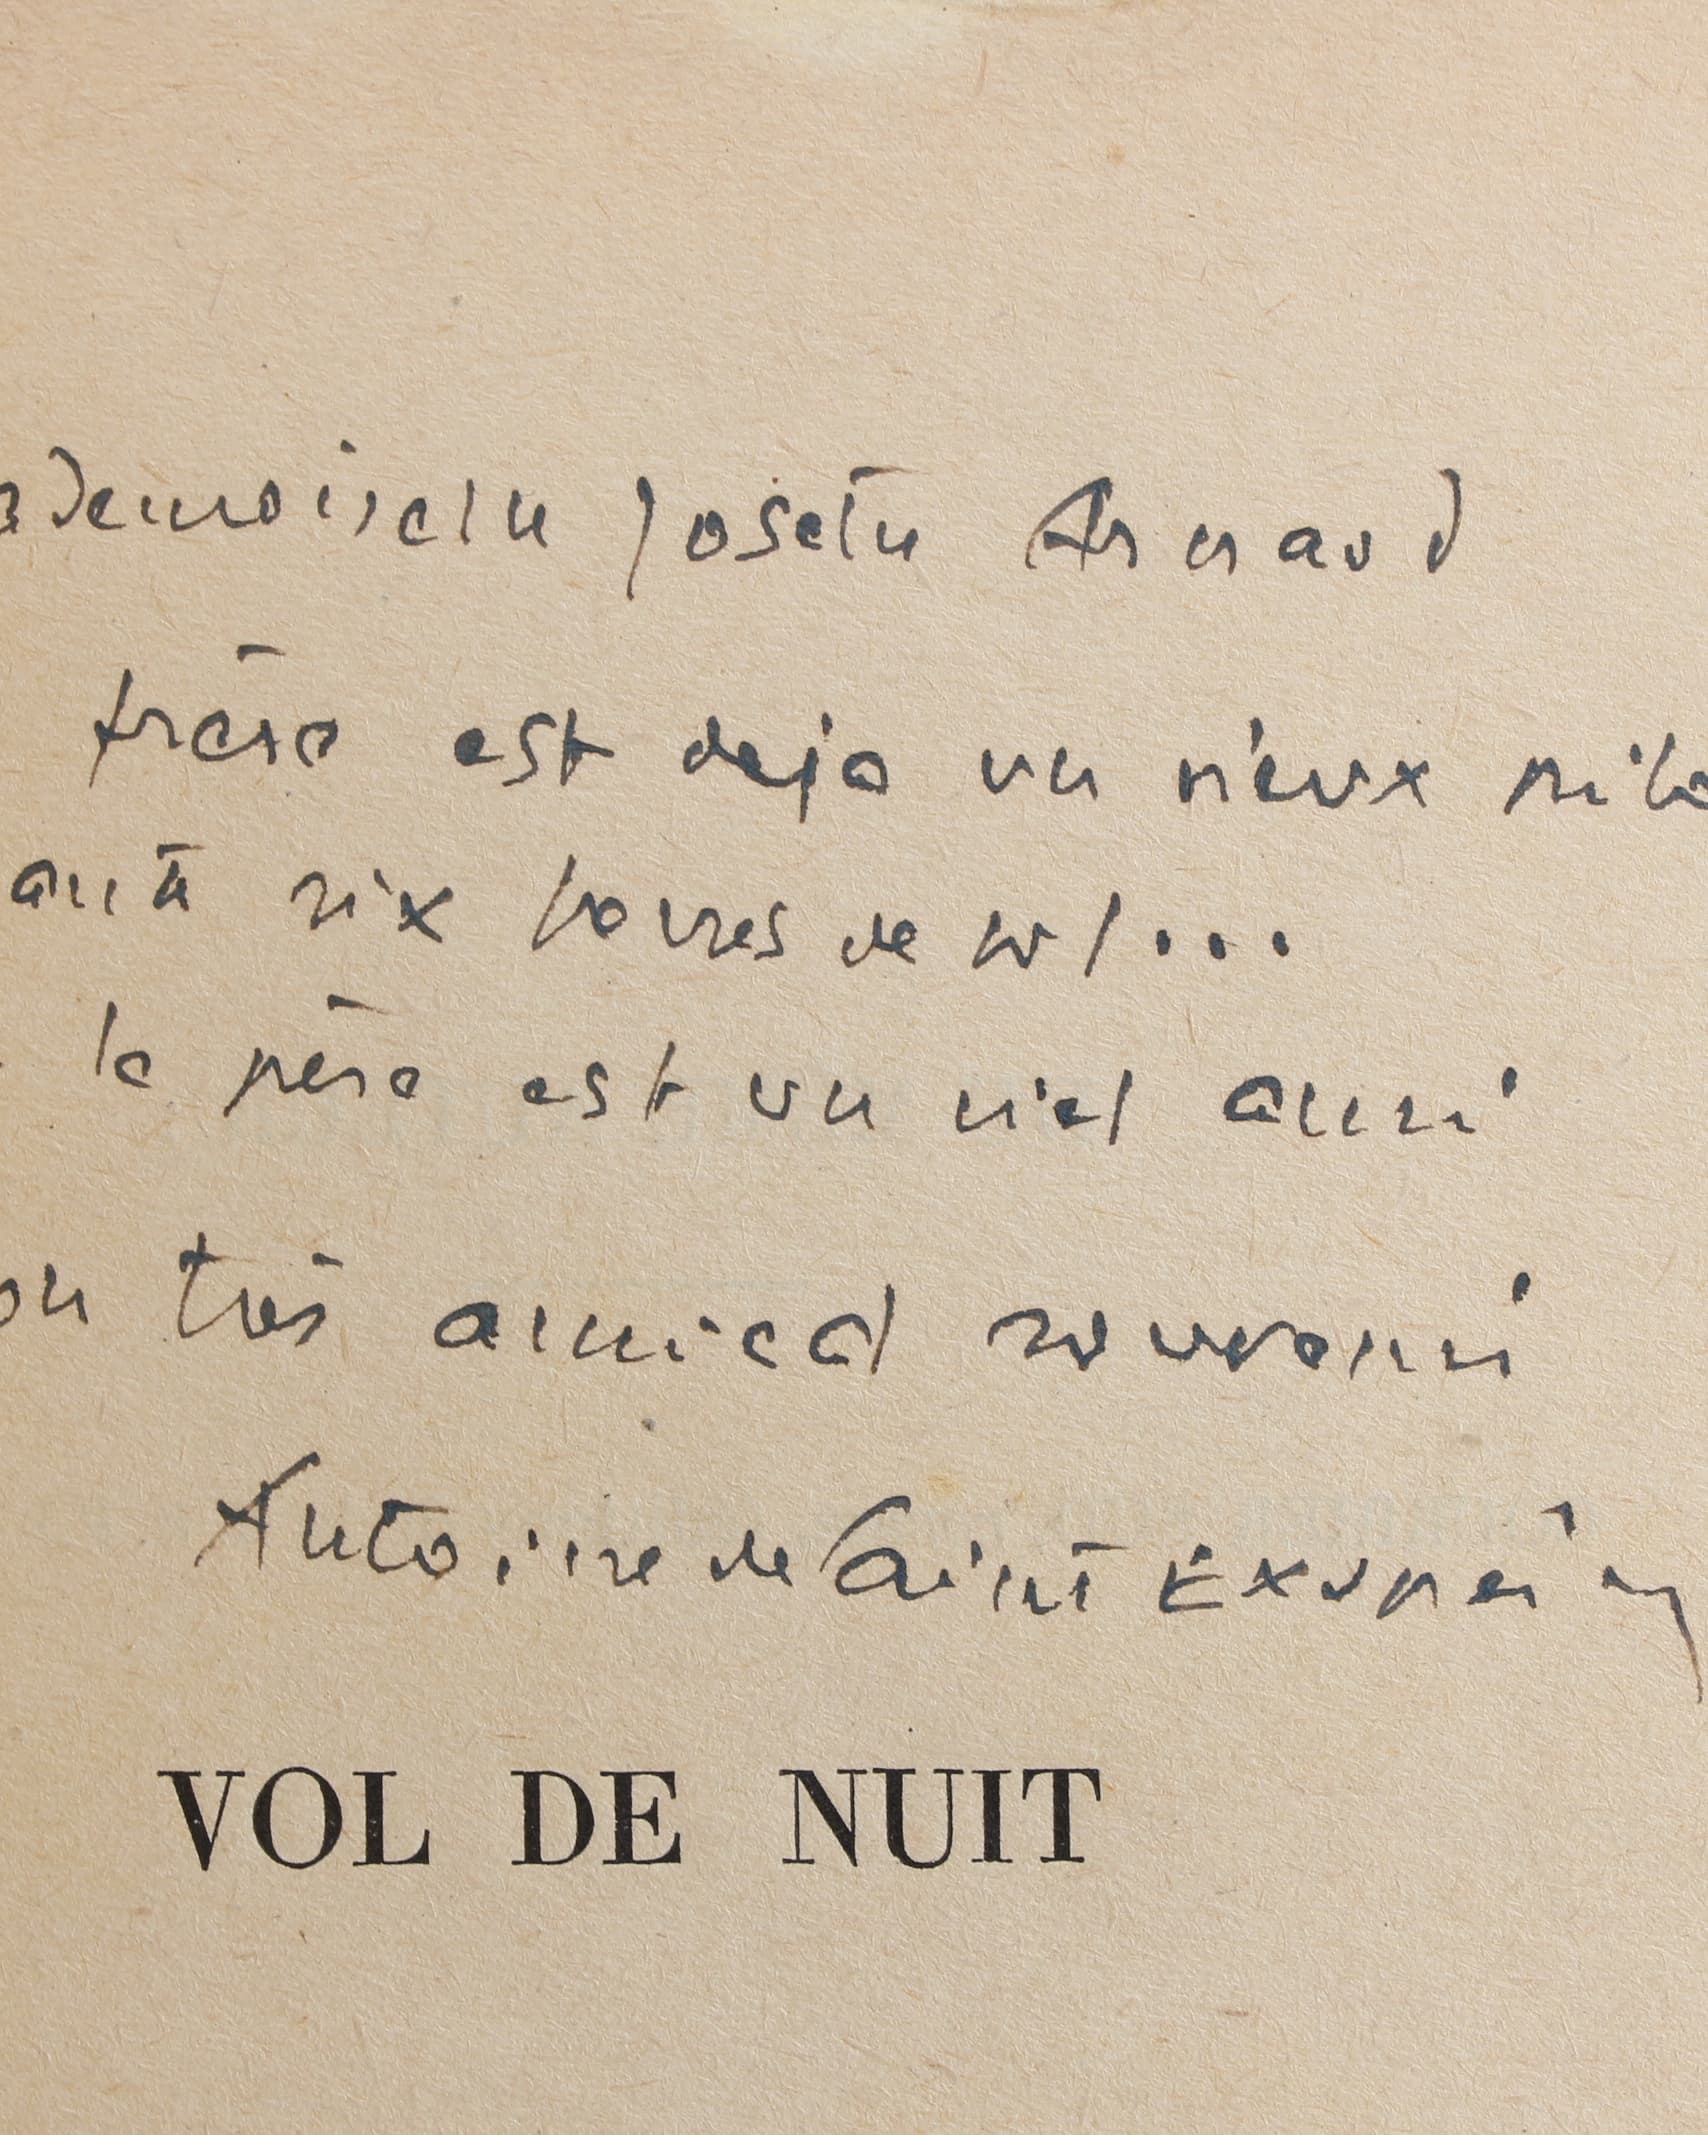 ademoiselle Josette Arnaud
frère est deja un vieux pilo
ante six heures de vol...
le père est un viel ami
on très amical souvenir
Antoine de Saint Exupéry
VOL DE NUIT